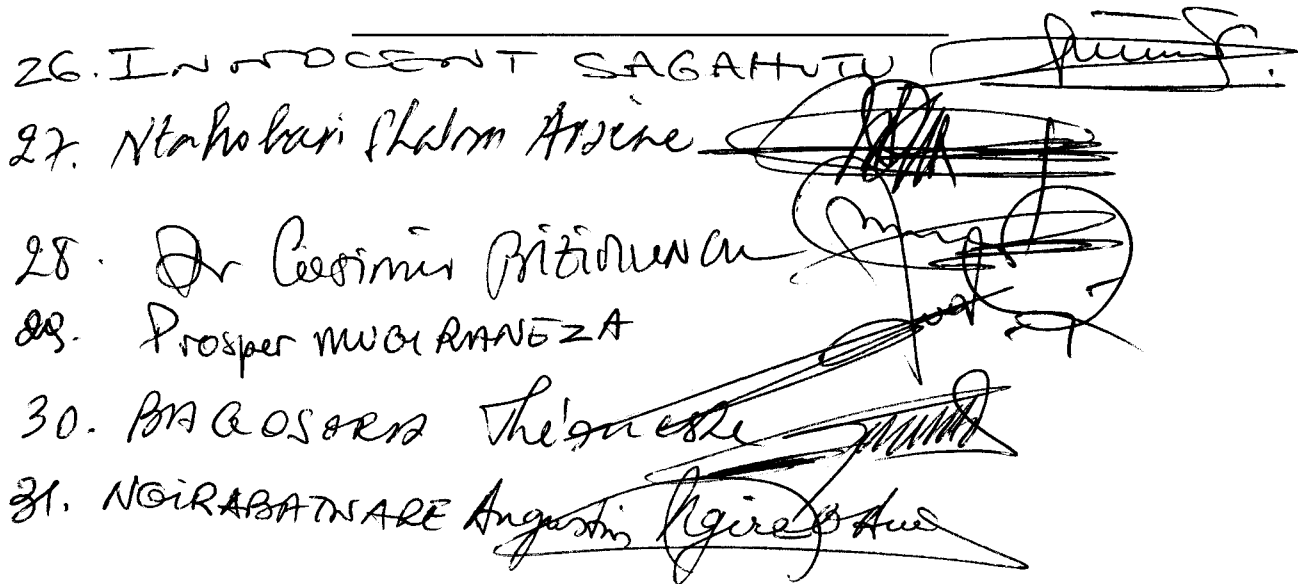 26. INNOCENT SAGAHUTU
27. Ntahobari Shalom Arsène
28. Dr Casimir BIZIMUNGU
29. Prosper MUGIRANEZA
30. BAGOSORA Théoneste
31. NGIRABATWARE Augustin